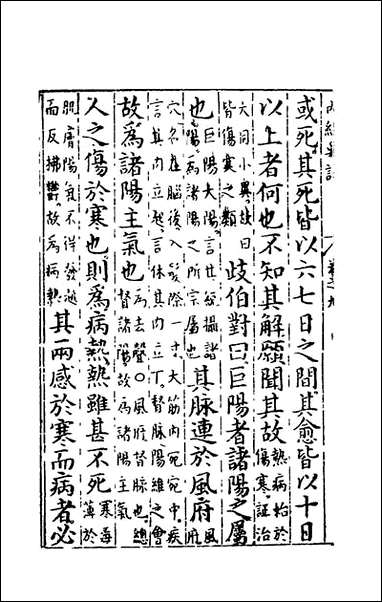 或死其死皆以六七日之間其愈皆以十日
以上者何也不知其解願聞其故熱病始於傷寒証治
大同小異故曰皆傷寒之類歧伯對曰巨陽者諸陽之屬
也巨陽太陽言其總攝諸陽為諸陽之所宗屬也其脉連於風府風府
穴名在腦後入髮際一寸大筋內宛宛中疾言其肉立起言休其肉立下督脉陽維之會
故爲諸陽主氣也為去聲○風府督脉也總督諸陽故為諸陽主氣
人之傷於寒也則爲病熱熱雖甚不死寒毒薄於
肌膚陽氣不得發越而反拂鬱故為病熱其兩感於寒而病者必